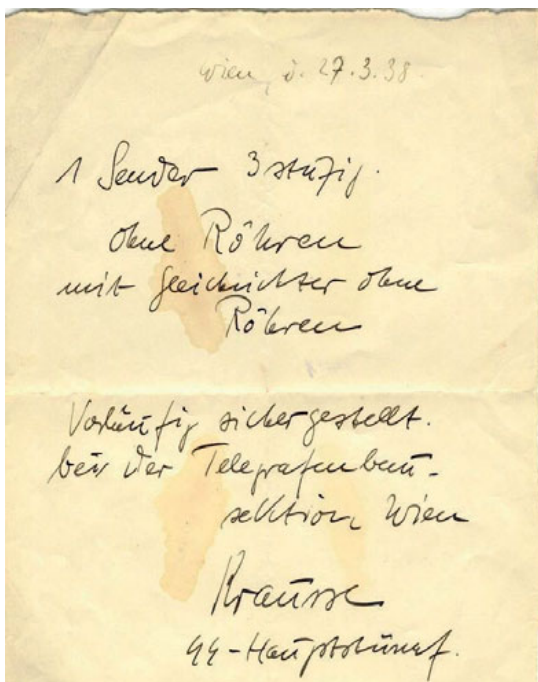 Wien, d. 27.3.38.
1 Sender 3 stufig.
ohne Röhren
mit Gleichrichter ohne
Röhren
Vorläufig sichergestellt.
bei der Telegrafenbau-
sektion, Wien
Krausse
SS-Hauptstürmf.